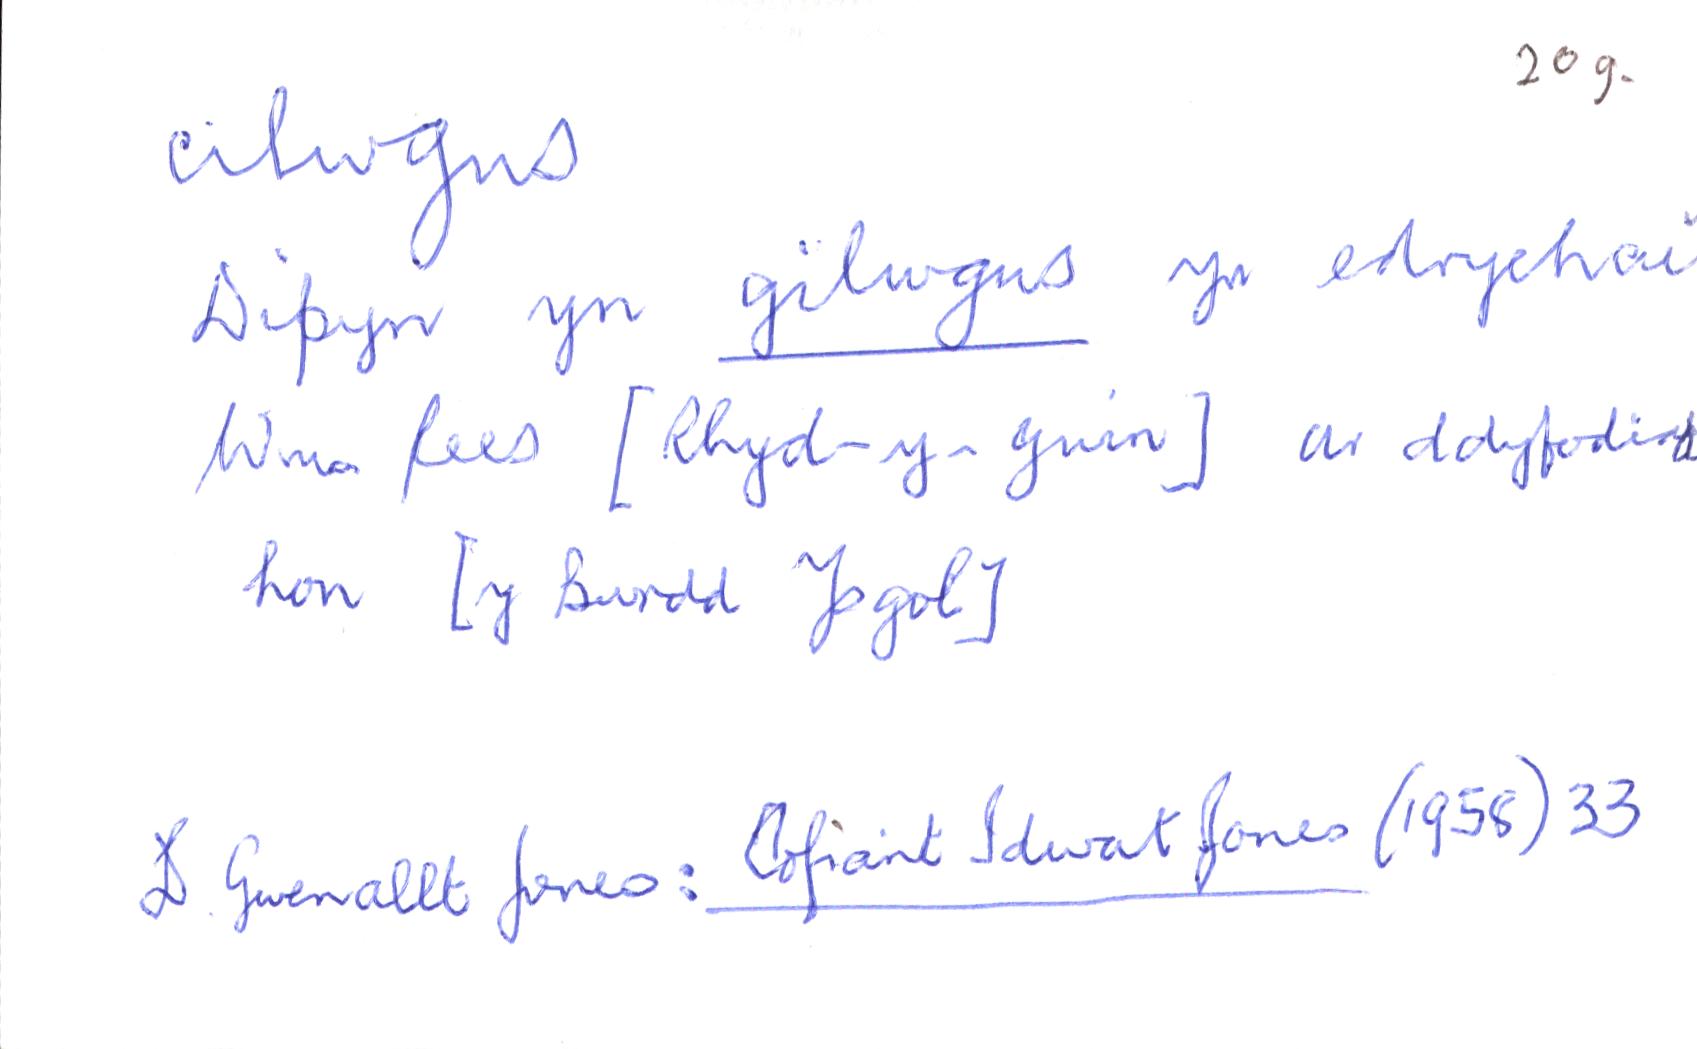 20 g.
cilwgus
Dipyn yn gilwgus yr edrychai
Wma Rees [Rhyd-y-gwin] ar ddyfodiad
hon [y Bwrdd Ysgol]
D. Gwenallt Jones: Cofiant Idwal Jones (1958) 33